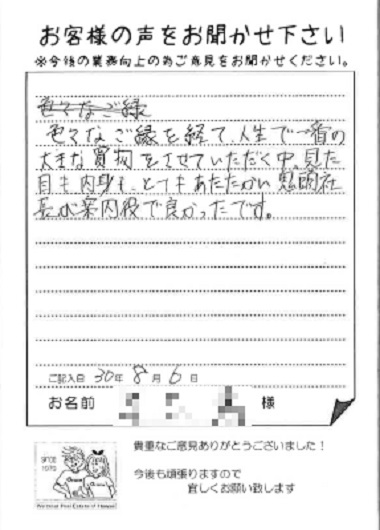 お客様の声をお聞かせ下さい
※今後の業務向上の為ご意見をお聞かせください。
色々なご縁
色々なご縁を経て、人生で一番の
大きな買物をさせていただく中、見た
目も内身も、とてもあたたかい 社
長が案内役で良かったです。
ご記入日 30年 8月 6日
お名前 様
SINCE 1979
貴重なご意見ありがとうございました！
今後も頑張りますので
宜しくお願い致します